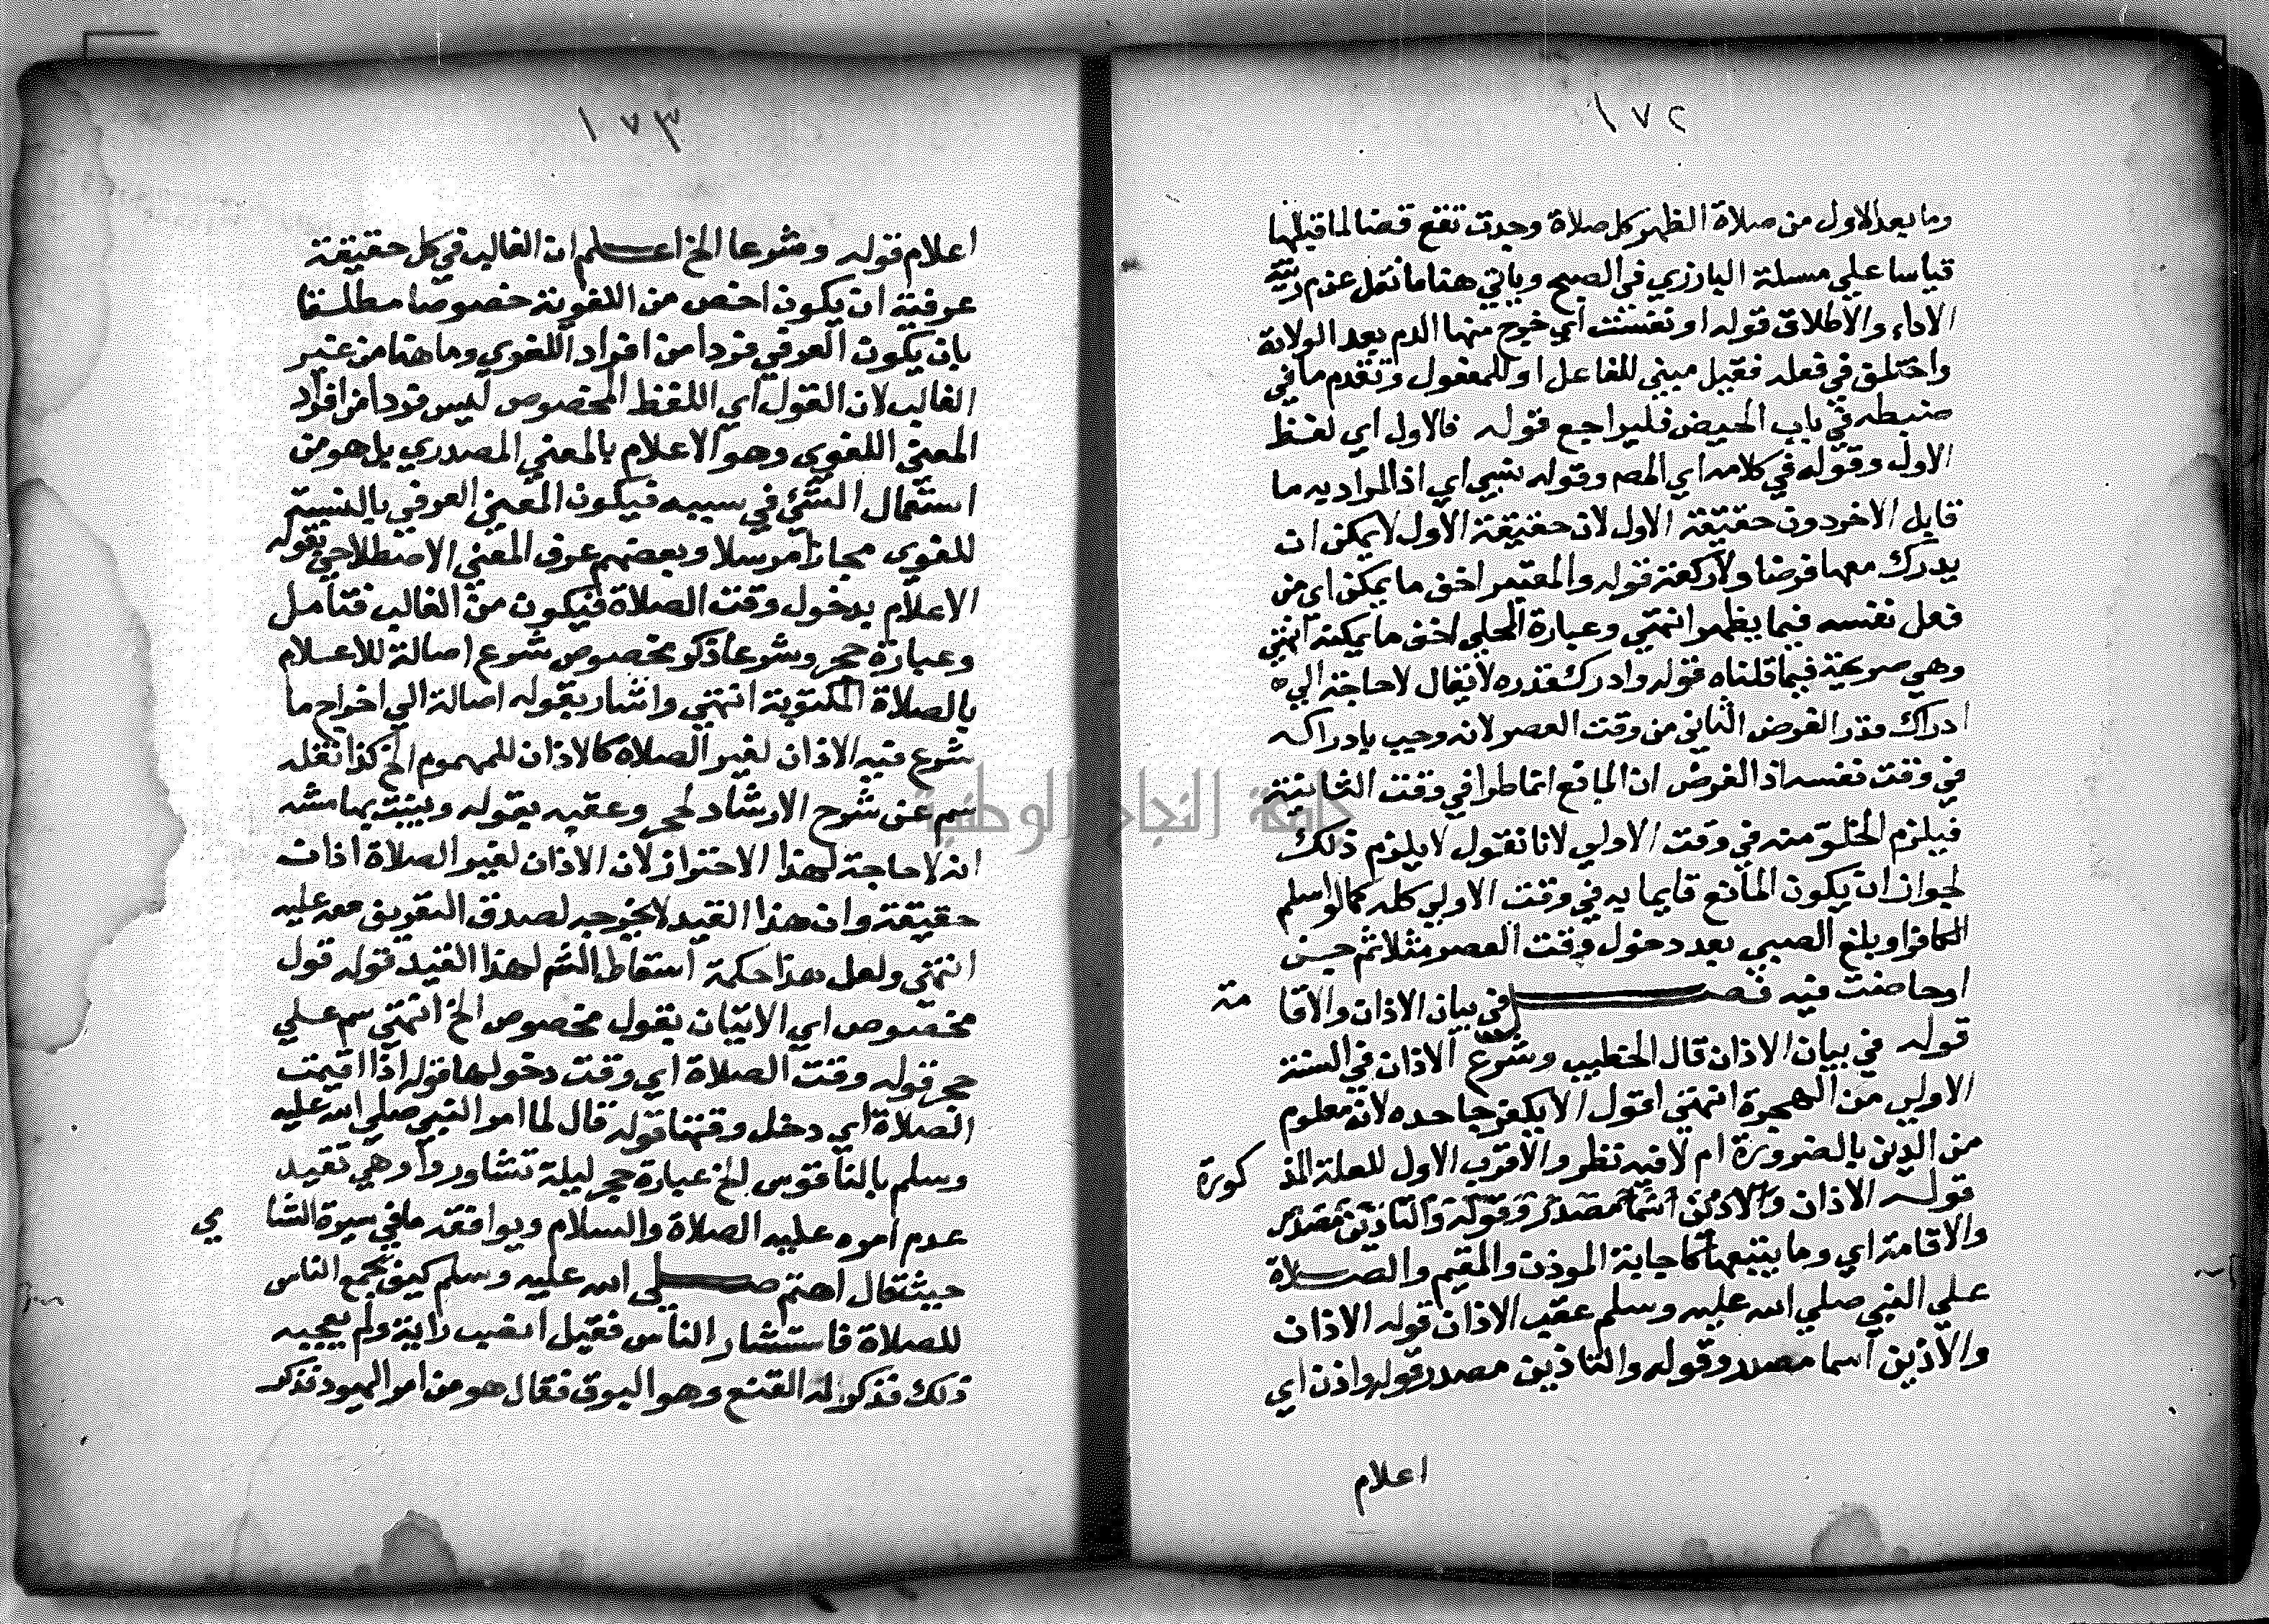 ١٧٢
وما بعد الاول من صلاة الظهر كل صلاة وجدت تقع قضا لما قبلها
قياسا علي مسلة البارزي في الصبح وياتي هنا ما نقل عن م ر نية
الاداء والاطلاق قوله او نفست اي خرج منها الدم بعد الولادة
واختلف في فعله فقيل مبني للفاعل او للمفعول وتقدم ما في
ضبطه في باب الحيض فليراجع قوله فالاول اي لفظ
الاول وقوله في كلامه اي المصـ وقوله نسبي اي اذ المراد به ما
قابل الاخر دون حقيقة الاول لان حقيقة الاول لا يمكن ان
يدرك معها فرضا ولا ركعة قوله والمعتبر اخف ما يمكن اي من
فعل نفسه فيما يظهر انتهي وعبارة المحلي اخف ما يمكنه انتهي
وهي صريحة فيما قلناه قوله وادرك قدره لا يقال لا حاجة الي
ادراك قدر الفرض الثاني من وقت العصر لانه وجب بادراكه
في وقت نفسه اذ الفرض ان المانع انما طرا في وقت الثانية
فيلزم الخلو منه في وقت الاولي لانا نقول لا يلزم ذلك
لجواز ان يكون المانع قايما به في وقت الاولي كله كما لو اسلم
الكافر او بلغ الصبي بعد دخول وقت العصر مثلا ثم جن
او حاضت فيه فصـــل في بيان الاذان والاقا مة
قوله في بيان الاذان قال الخطيب وشرع الاذان في السنة
الاولي من الهجرة انتهي اقول الا يكفر جاحده لانه معلوم
من الدين بالضرورة ام لا فيه نظر والاقرب الاول للعلة المذ كورة
قوله الاذان والاذين اسما مصدر وقوله والتاذين مصدر
والاقامة اي وما يتبعها كاجابة الموذن والمقيم والصلاة
علي النبي صلي الله عليه وسلم عقب الاذان قوله الاذان
والاذين اسما مصدر وقوله والتاذين مصدر قوله واذن اي
اعلام
١٧٣
اعلام قوله وشرعا الخ اعلم ان الغالب في كل حقيقة
عرفية ان يكون اخص من اللغوية خصوصا مطلقا
بان يكون العرفي فردا من افراد اللغوي وما هنا من غير
الغالب لان القول اي اللفظ المخصوص ليس فردا من افراد
المعني اللغوي وهو الاعلام بالمعني المصدري بل هو من
استعمال الشئ في سببه فيكون المعني العرفي بالنسبة
للغوي مجازا مرسلا وبعضهم عرف المعني الاصطلاحي بقوله
الاعلام بدخول وقت الصلاة فيكون من الغالب فتامل
وعبارة حجر وشرعا ذكر مخصوص شرع اصالة للاعلام
بالصلاة المكتوبة انتهي واشار بقوله اصالة الي اخراج ما
شرع فيه الاذان لغير الصلاة كالاذان للمهموم الخ كذا نقله
سم عن شرح الارشاد لحجر وعقبه بقوله وبينت بهامشه
انه لا حاجة لهذا الاحتراز لان الاذان لغير الصلاة اذان
حقيقة وان هذا القيد لا يخرجه لصدق التعريف معه عليه
انتهي ولعل هذا حكمة اسقاط الشم لهذا القيد قوله قول
مخصوص اي الاتيان بقول مخصوص الخ انتهي سم علي
حجر قوله وقت الصلاة اي وقت دخولها قوله اذا اقيمت
الصلاة اي دخل وقتها قوله قال لما امر النبي صلي الله عليه
وسلم بالناقوس الخ عبارة حجر ليلة تشاوروا وهي تفيد
عدم امره عليه الصلاة والسلام ويوافقه ما في سيرة الشا مي
حيث قال اهتم صلي الله عليه وسلم كيف يجمع الناس
للصلاة فاستشار الناس فقيل انصب راية ولم يعجبه
ذلك فذكر له القنع وهو البوق فقال هو من امر اليهود فذكر
جامعة النجاح الوطنية